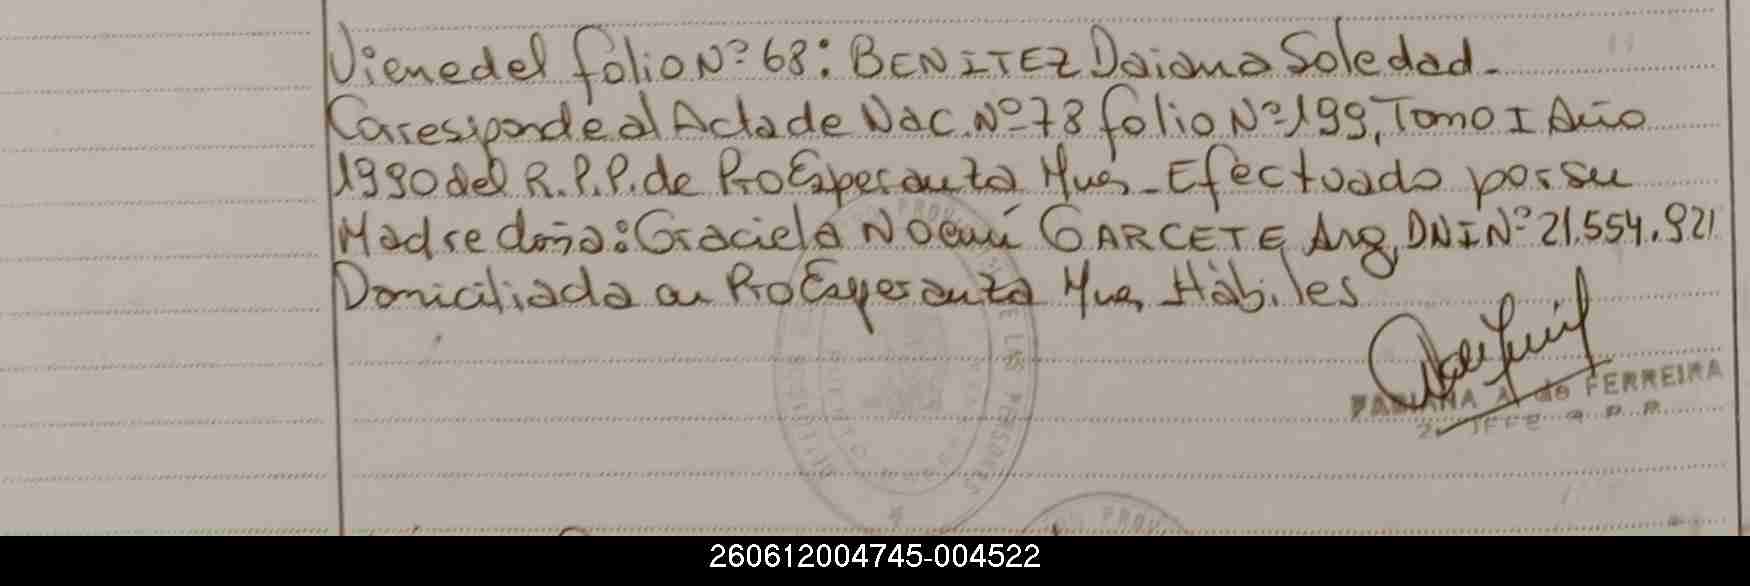 Viene del folio Nº 68: BENITEZ Daiana Soledad.
Corresponde al Acta de Nac. Nº 78 folio Nº 199, Tomo I Año
1990 del R.P.P. de Pto Esperanza Mnes. Efectuado por su
Madre doña: Graciela Noemí GARCETE Arg. DNI Nº 21.554.921
Domiciliada en Pto Esperanza Mnes Hábiles
FABIANA A. de FERREIRA
260612004745-004522